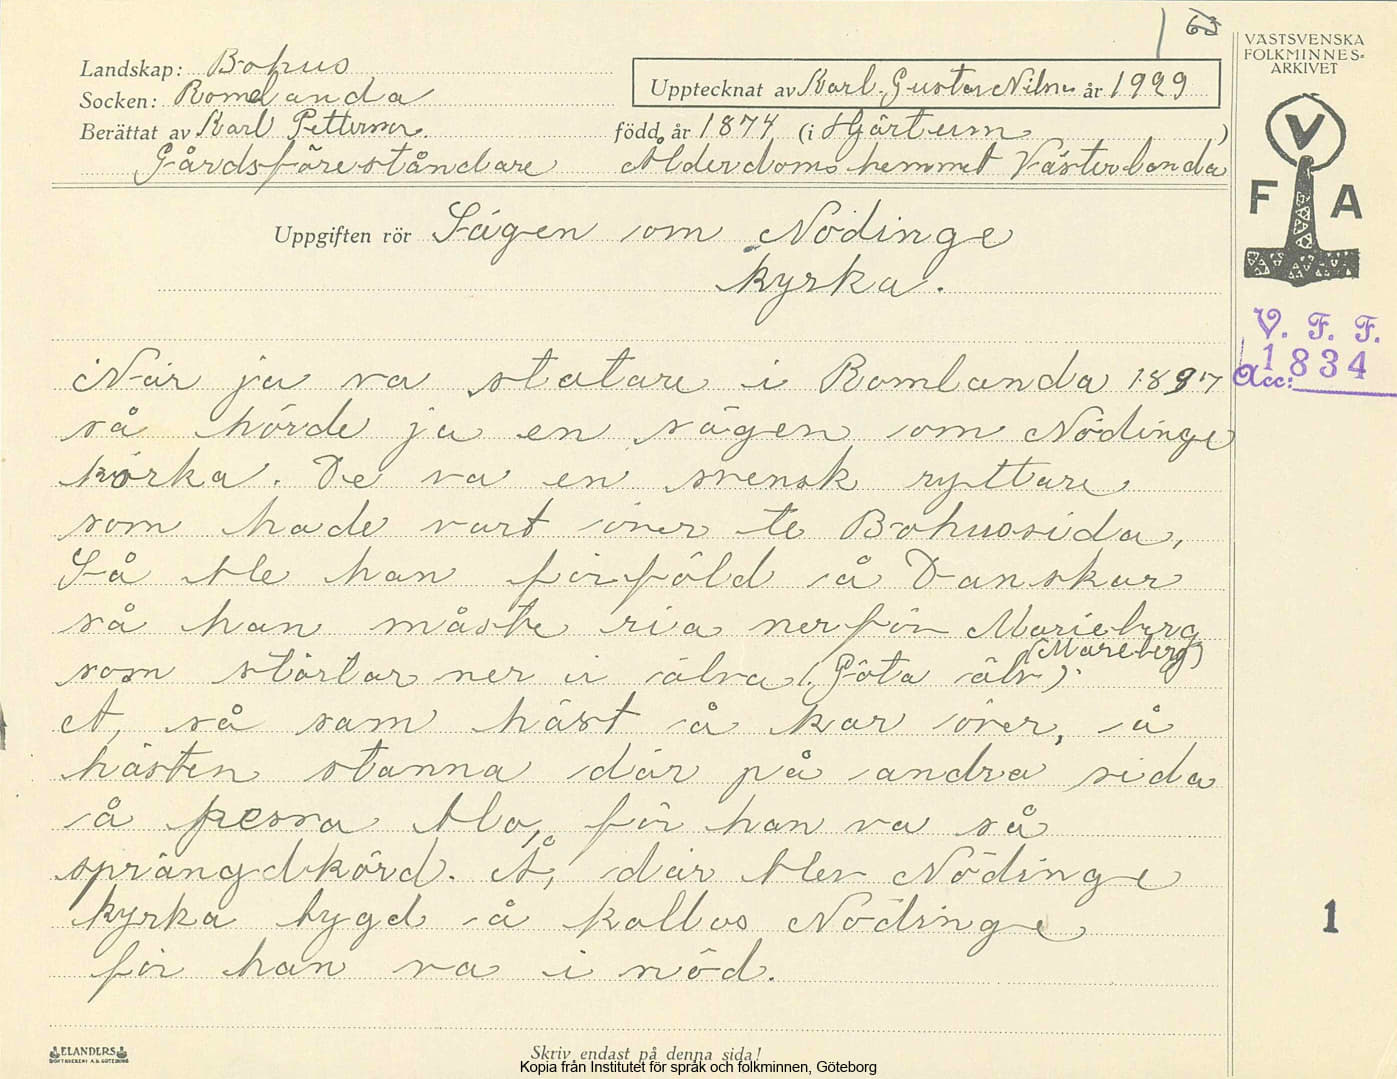 63
Landskap: Bohus
Socken: Romelanda
Berättat av Karl Petterson.
Gårdsföreståndare
Upptecknat av Karl-Gustav Nilson år 1929
född år 1874 (i Hjärtum )
Ålderdomshemmet Västerlanda
Uppgiften rör Sägen om Nödinge
kyrka.
VÄSTSVENSKA
FOLKMINNES-
ARKIVET
V
F A
V. F. F.
Acc: 1834
När ja va statare i Romlanda 1897
så hörde ja en sägen om Nödinge
körka. De va en svensk ryttare
som hade vart över te Bohussida,
Så ble han förföld å Danskar
så han måste ria nerför Marieberg
(Mareberg)
som störtar ner i älva (Göta älv).
Å, så sam häst å kar över, å
hästen stanna där på andra sida
å pessa blo, för han va så
sprängdkörd. Å, där blev Nödinge
kyrka bygd å kallas Nödinge
för han va i nöd.
1
ELANDERS
BOKTRYCKERI A.B. GÖTEBORG
Skriv endast på denna sida!
Kopia från Institutet för språk och folkminnen, Göteborg